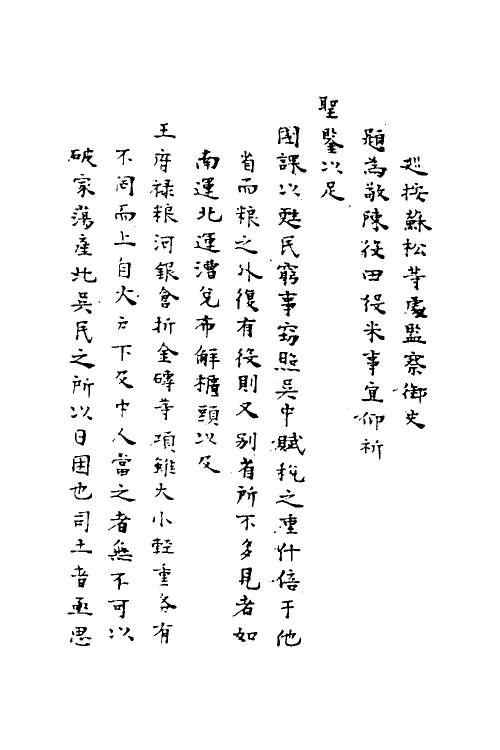 巡按蘇松等處監察御史
題為敬陳役田役米事宜仰祈
聖鑒以足
國課以甦民窮事竊照吳中賦稅之重什倍于他
省而粮之外復有役則又別省所不多見者如
南運北運漕兌布解櫃頭以及
王府祿粮河銀倉折金磚等項雖大小輕重各有
不同而上自大戶下及中人當之者無不可以
破家蕩產此吳民之所以日困也司土者亟思